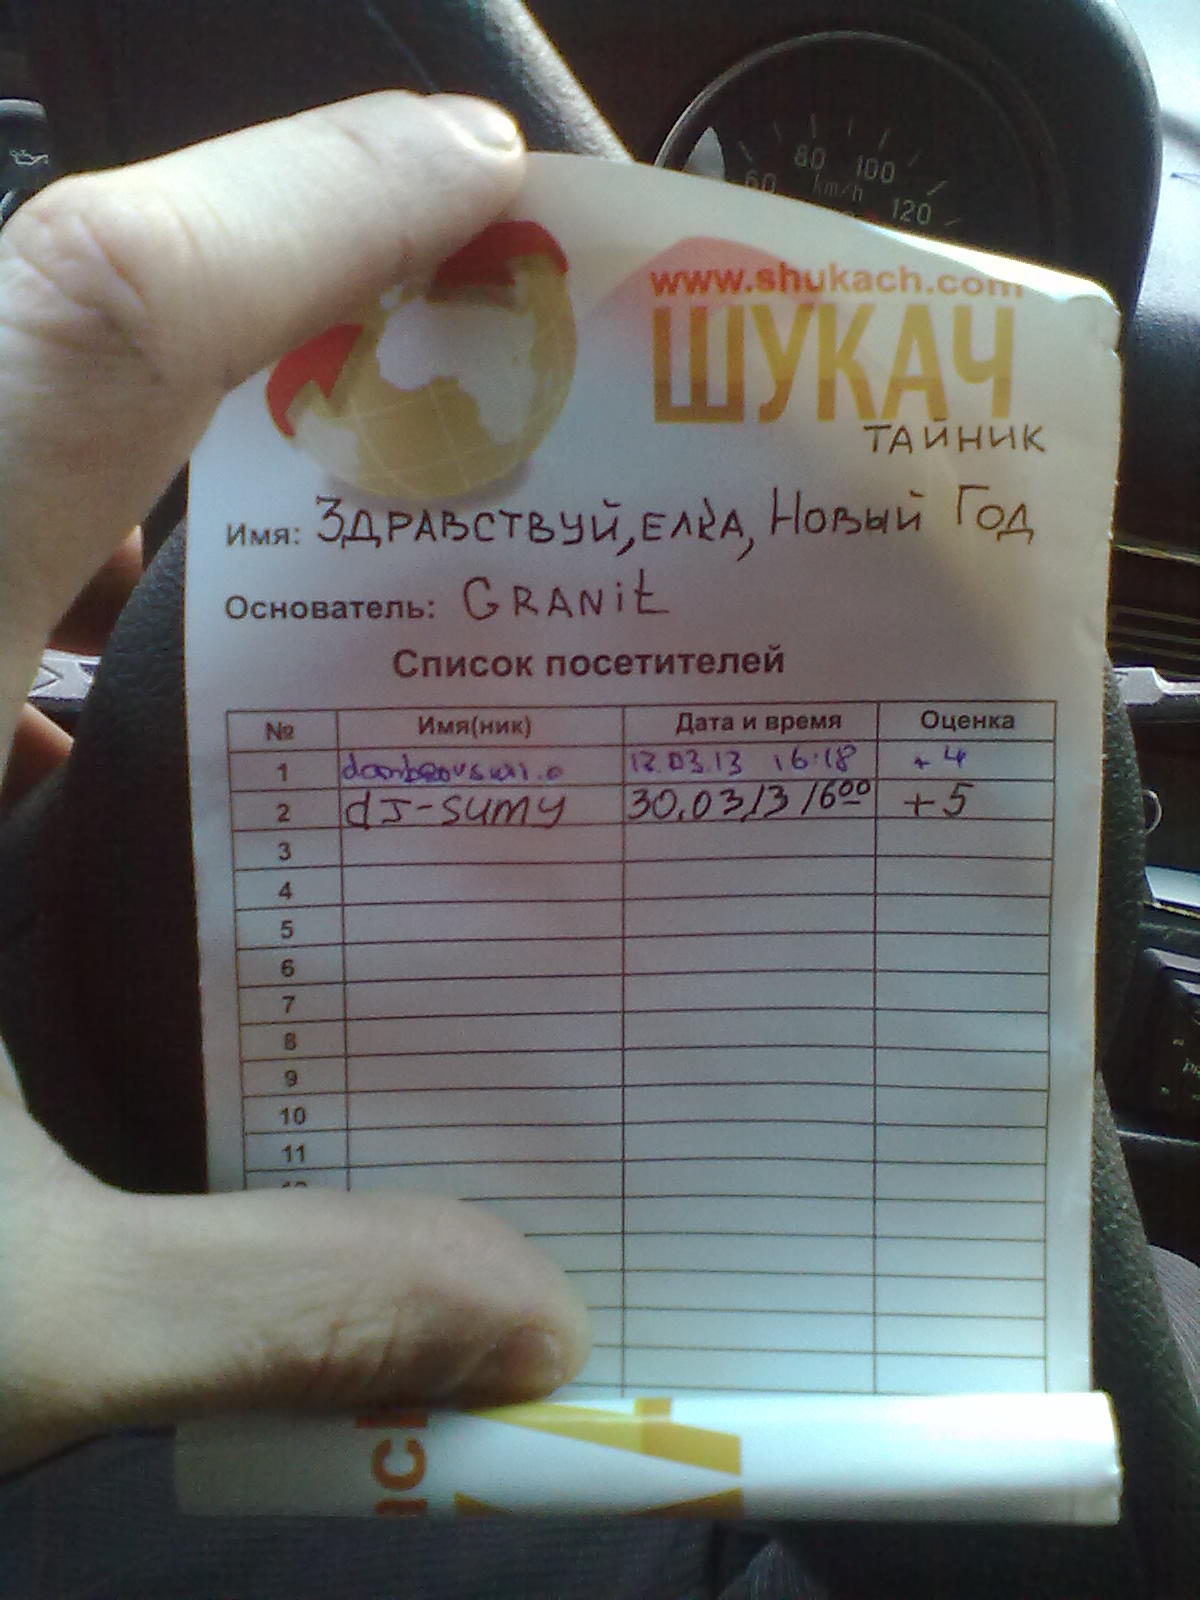 80
100
60
km/h
120
www.shukach.com
ШУКАЧ
ТАЙНИК
Имя: ЗДРАВСТВУЙ, ЕЛКА, НОВЫЙ ГОД
Основатель: GRANit
Список посетителей
№ Имя(ник) Дата и время Оценка
1 12.03.13 16:18 +4
2 dJ-sumy 30.03.13 16⁰⁰ +5
3
4
5
6
7
8
9
10
11